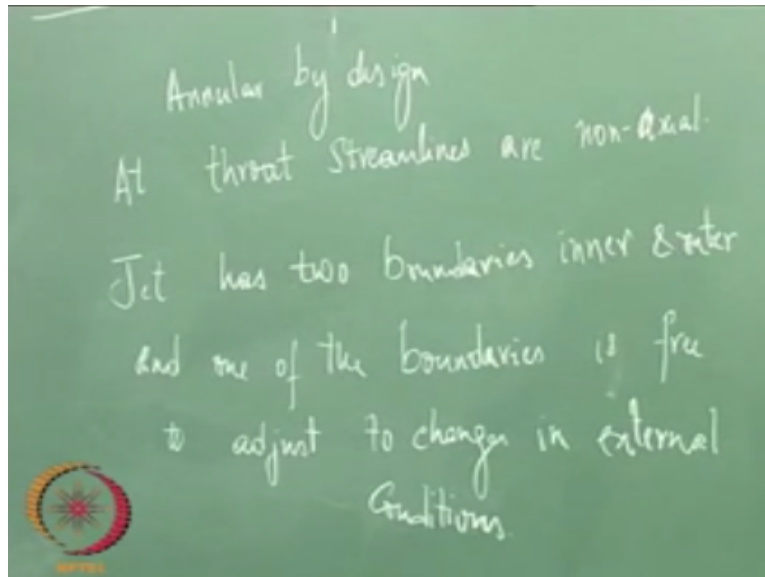 Annular by design
At throat Streamlines are non-axial.
Jet has two boundaries inner & outer
and one of the boundaries is free
to adjust to changes in external
Conditions.
NPTEL